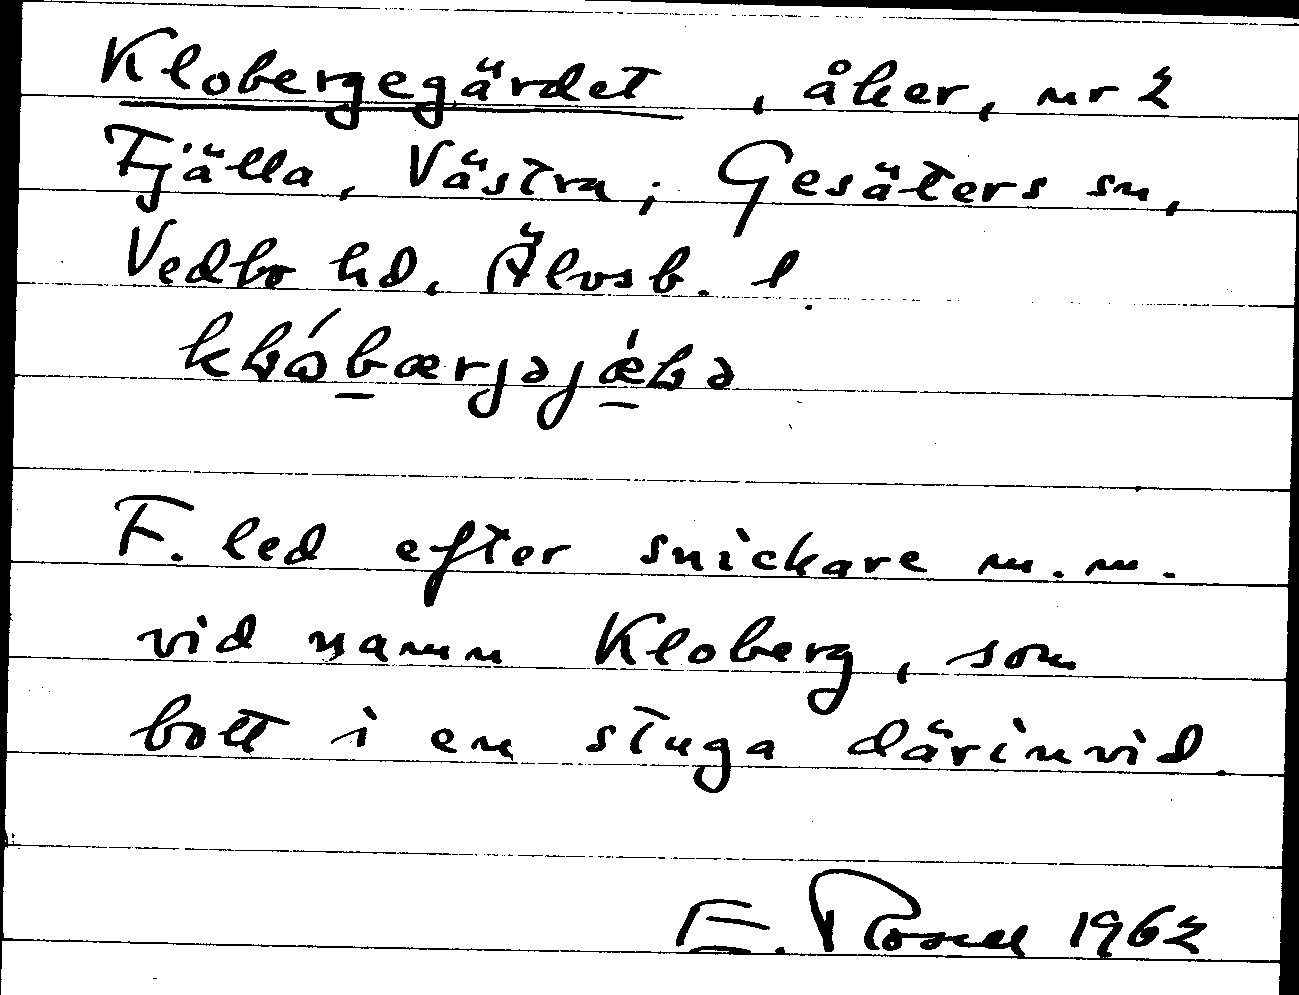 Klobergegärdet, åker, nr 2
Fjälla, Västra; Gesäters sn,
Vedbo hd. Älvsb. l.
F. led efter snickare m.m.
vid namn Kloberg, som
bott i en stuga därinvid.
E. 1962